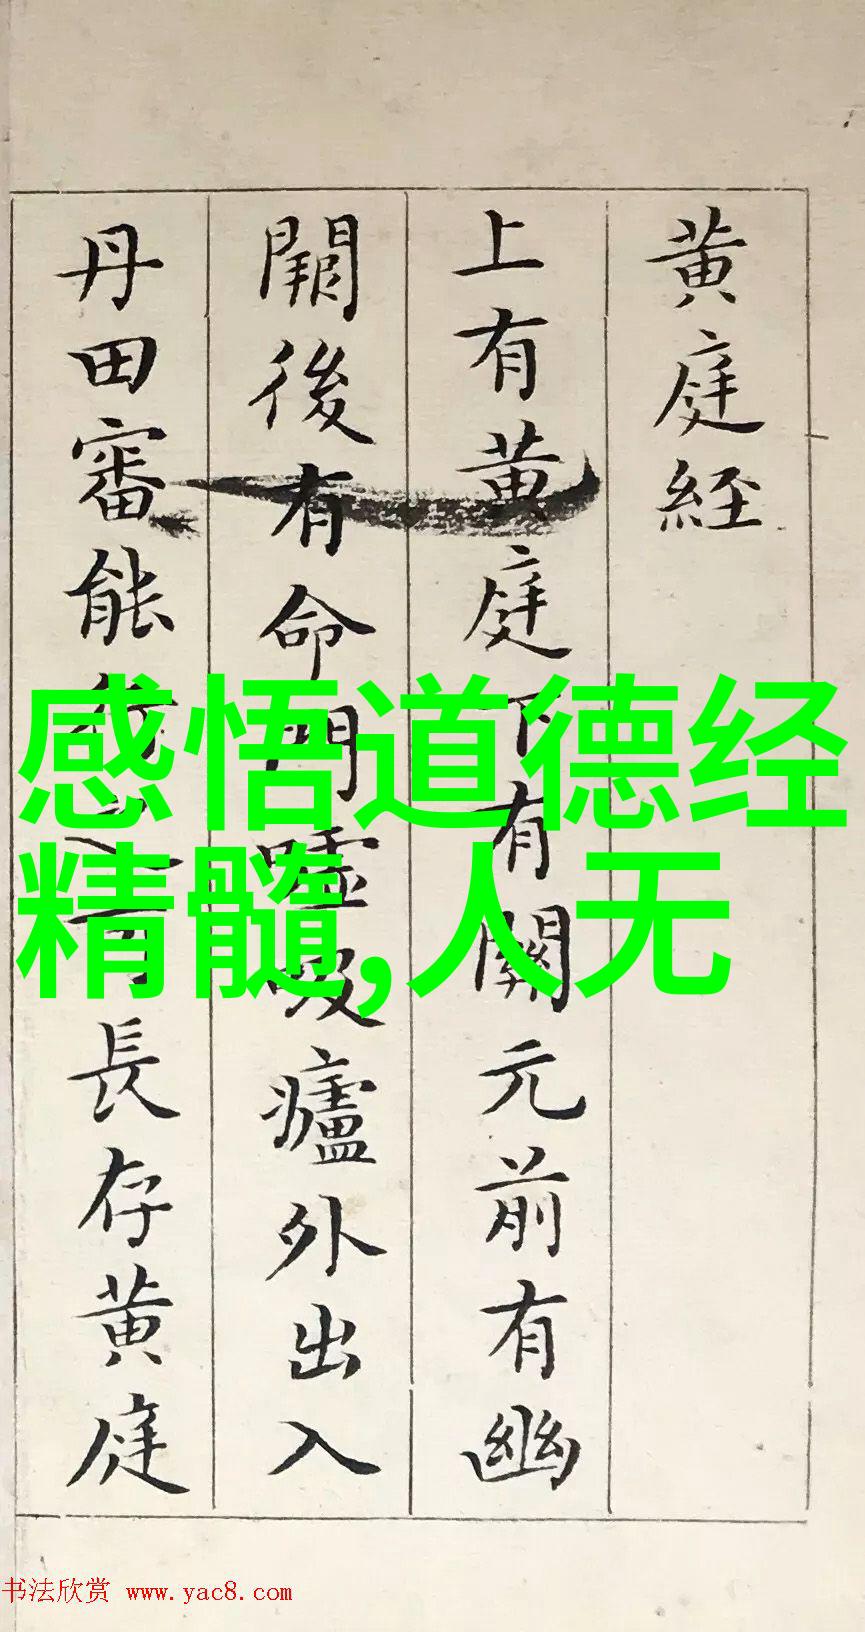 黄庭經
上有黄庭下有關元前有幽
闕後有命門噓吸廬外出入
丹田審能行之可長存黄庭
感悟道德经
精髓,人无
书法欣赏 www.yac8.com